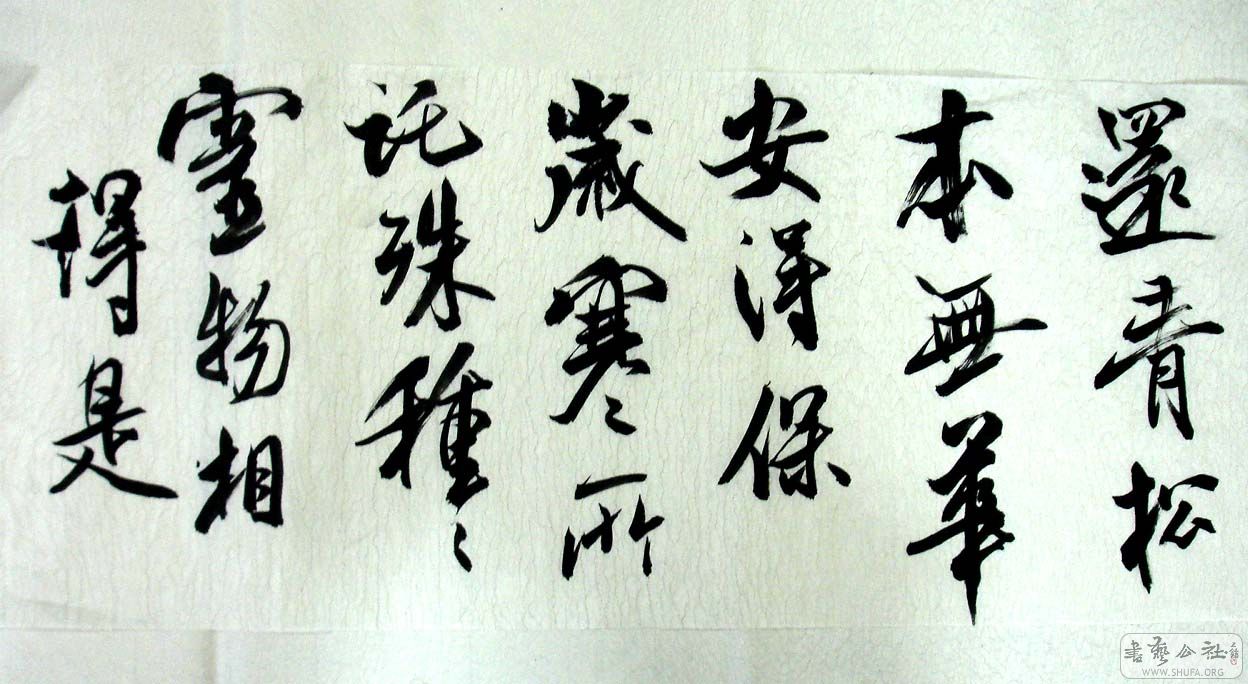 還青松
本無華
安得保
歲寒〻所
託殊種〻
靈物相
得是
書藝公社
WWW.SHUFA.ORG